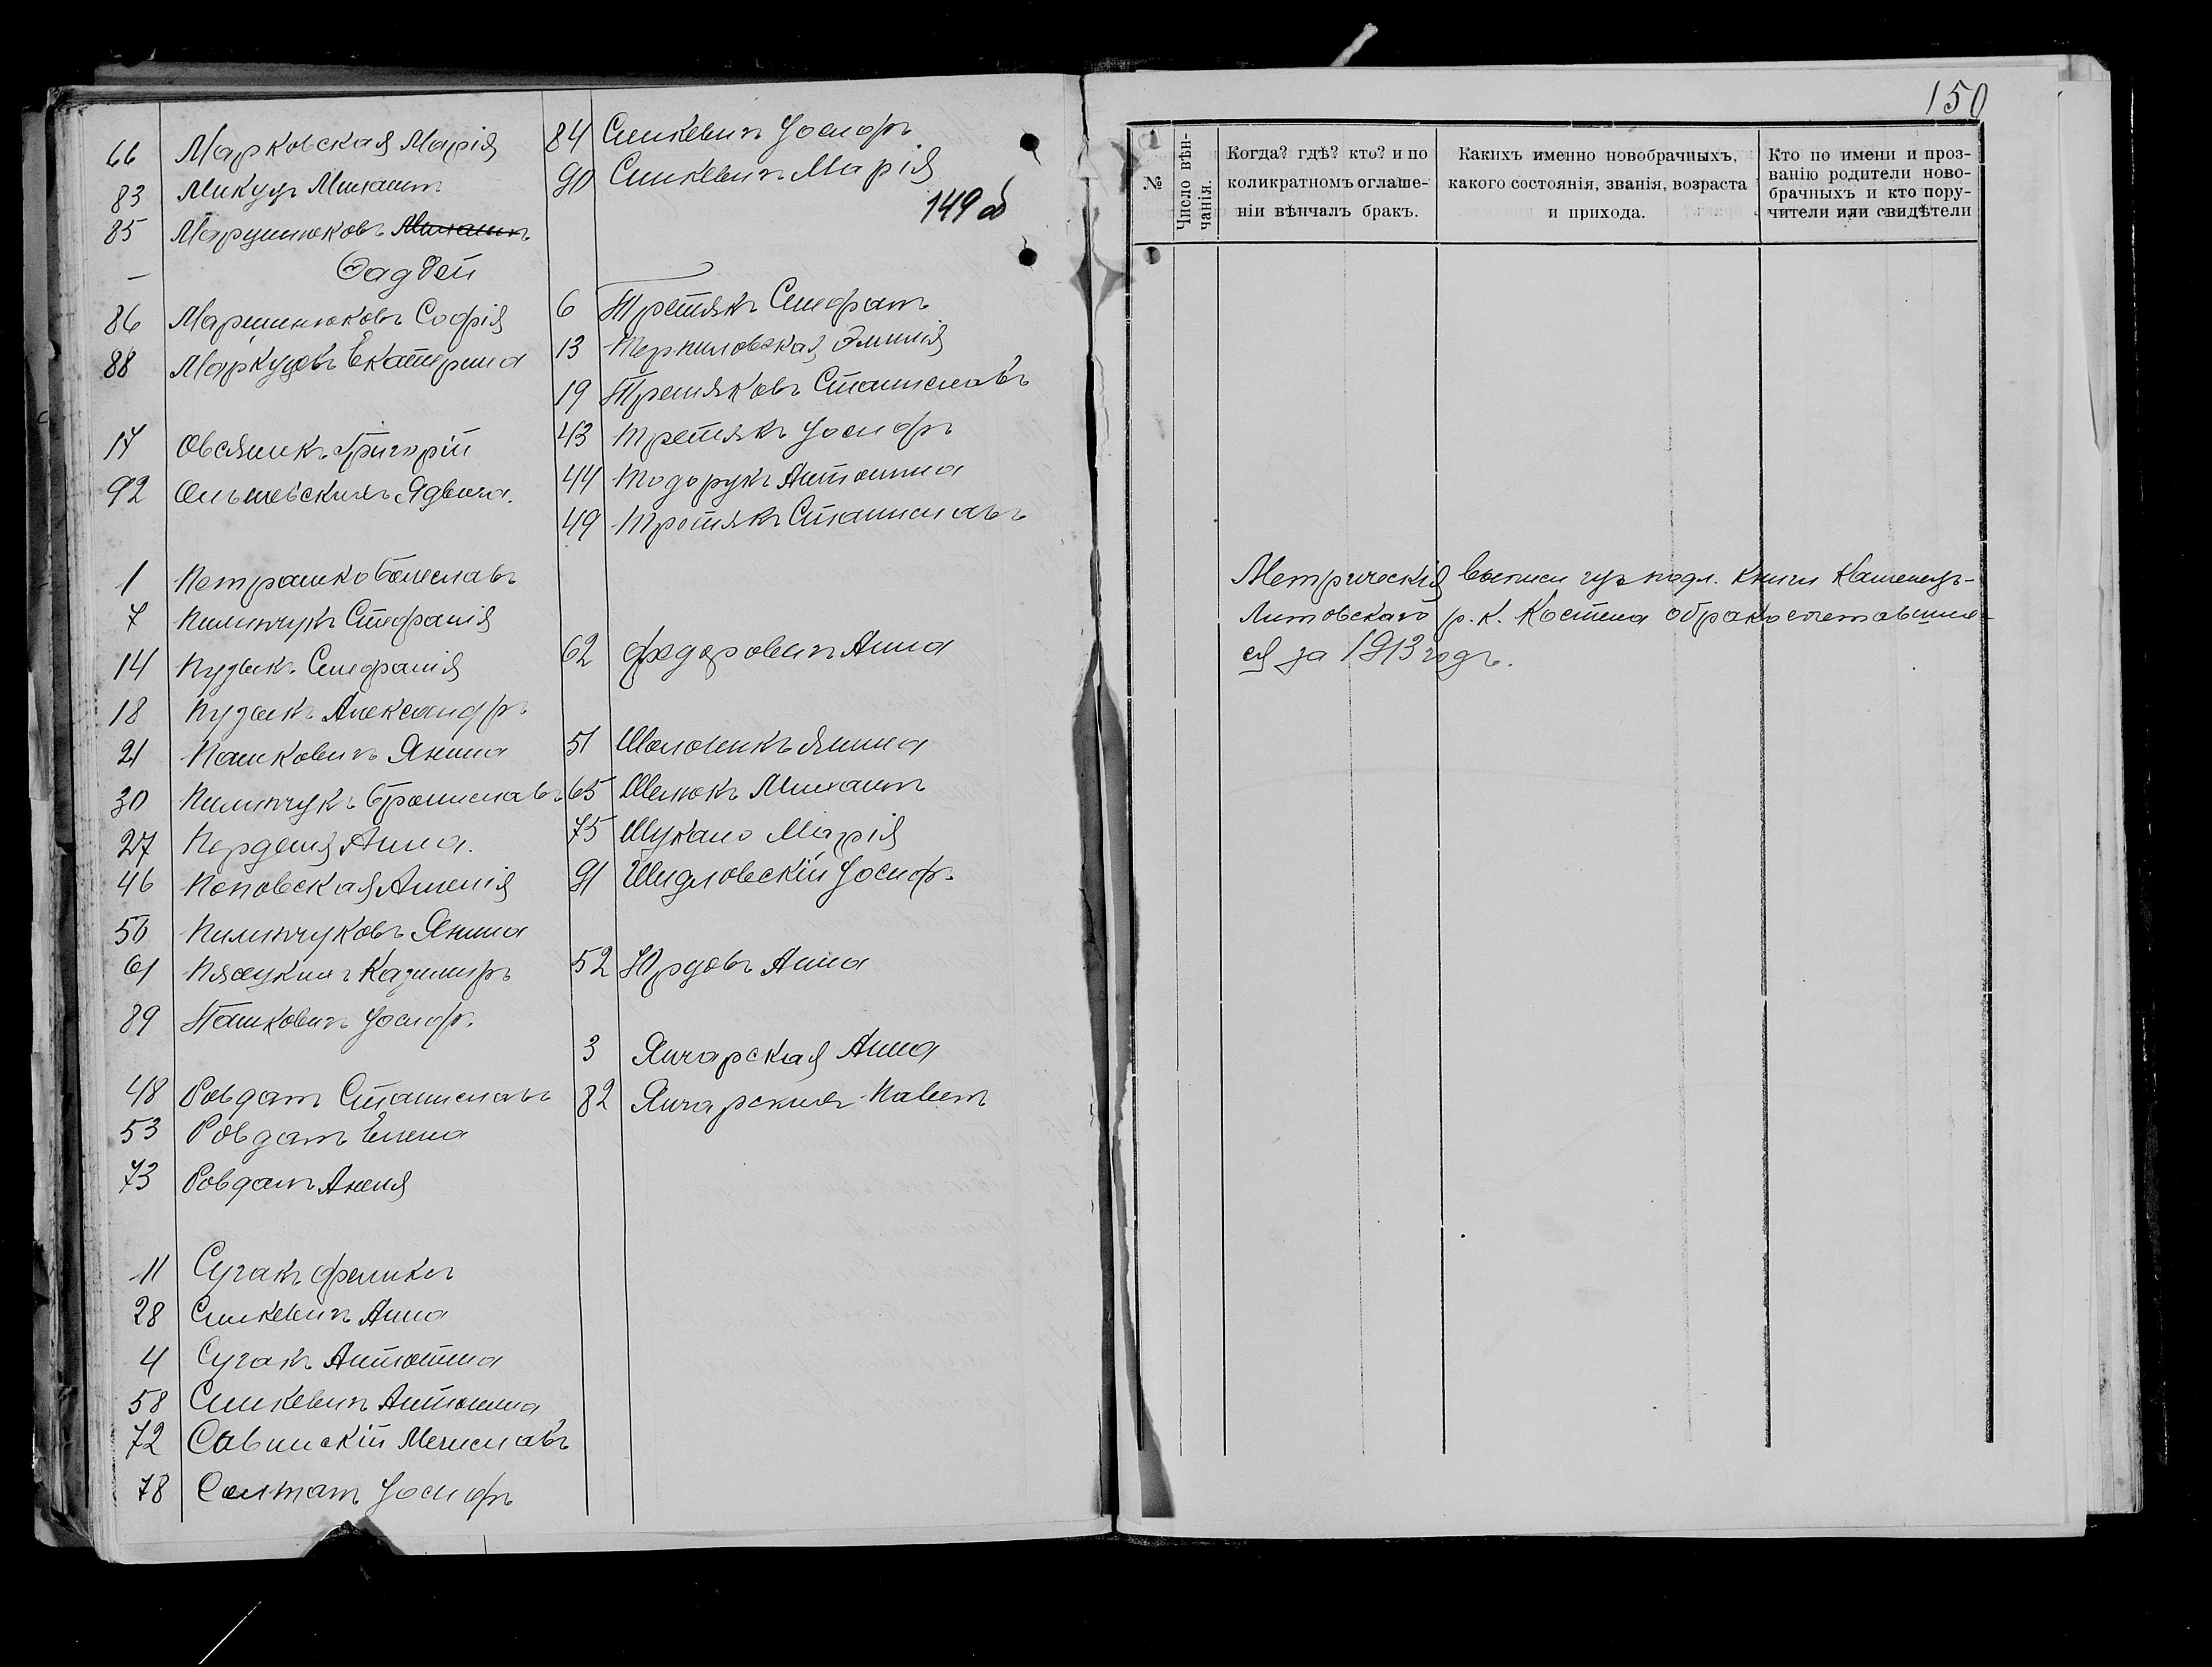 66 Марковская Марія
83 Микуц Михаилъ
85 Марцинюковъ Михаилъ
— Фаддей
86 Марцинюковъ Софія
88 Маркуцовъ Екатерина
17 Овсяникъ Григорій
92 Ольшевскихъ Ядвига.
1 Петрашко Болеславъ
7 Пилипчукъ Стефанія
14 Пузыкъ Стефанія
18 Пузыкъ Александръ
21 Пашкевичъ Янина
30 Пилипчукъ Брониславъ
27 Перденя Анна.
46 Поповская Амелія
50 Пилипчуковъ Янина
61 Казимиръ
89 Пашкевичъ Іосифъ.
48 Ровдатъ Станиславъ
53 Ровдатъ Елена
73 Ровдатъ Анеля
11 Сугакъ Феликсъ
28 Синкевичъ Анна
4 Сугакъ Антонина
58 Синкевичъ Антонина
72 Савинскій Мечиславъ
78 Солтанъ Іосифъ
84 Синкевичъ Іосифъ
90 Синкевичъ Марія
149 об
6 Третякъ Стефанъ
13 Терпиловская Эмилія
19 Третяковъ Станиславъ
43 Третякъ Іосифъ
44 Тодорукъ Антонина
49 Третякъ Станиславъ
62 Федоровичъ Анна
51 Янина
65 Шенюкъ Михаилъ
75 Шукало Марія
91 Шидловскій Іосифъ.
52 Юрцовъ Анна
3 Янчарская Анна
82 Янчарскихъ Павелъ
150
№
Число вѣнчанія.
Когда? гдѣ? кто? и по
коликратномъ оглаше-
ніи вѣнчалъ бракъ.
Какихъ именно новобрачныхъ,
какого состоянія, званія, возраста
и прихода.
Кто по имени и проз-
ванію родители ново-
брачныхъ и кто пору-
чители или свидѣтели
Метрическія выписи изъ подл. книги Каменецъ-
Литовскаго р. к. Костела о бракосочетавших-
ся за 1913 годъ.